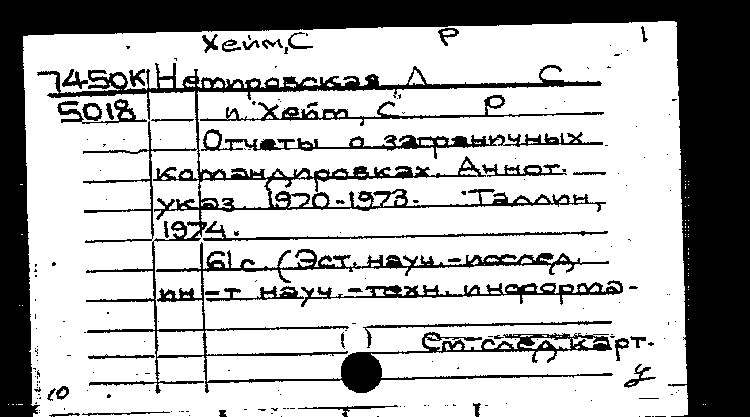 Хейм, С Р 1
7450К Немировская, Л С
5018 и Хейм, С Р
Отчеты о заграничных
командировках. Аннот.
указ. 1970-1973. Таллин,
1974.
61 с. (Эст. науч.-исслед.
ин-т науч.-техн. информа-
См. след. карт.
10 У